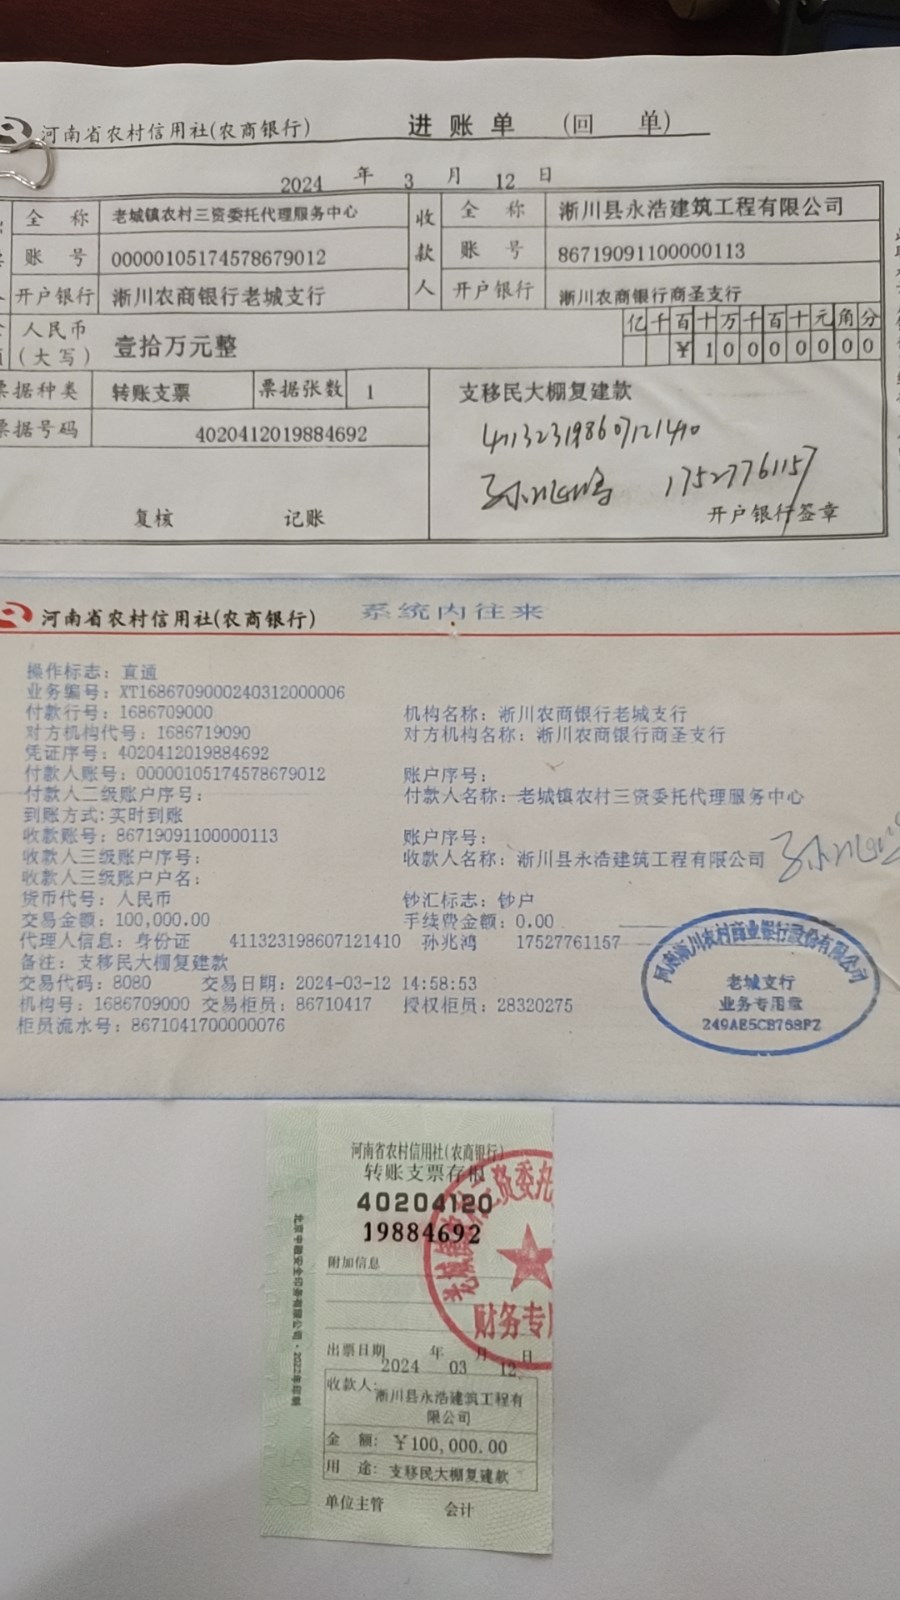 河南省农村信用社(农商银行) 进账单 (回单)
2024 年 3 月 12 日
全称 老城镇农村三资委托代理服务中心 收款人 全称 淅川县永浩建筑工程有限公司
账号 00000105174578679012 账号 86719091100000113
开户银行 淅川农商银行老城支行 开户银行 淅川农商银行商圣支行
人民币(大写) 壹拾万元整 亿千百十万千百十元角分
¥10000000
票据种类 转账支票 票据张数 1 支移民大棚复建款
票据号码 4020412019884692 411323198607121410
孙兆鸿 17527761157
复核 记账 开户银行签章
河南省农村信用社(农商银行) 系统内往来
操作标志：直通
业务编号：XT1686709000240312000006
付款行号：1686709000 机构名称：淅川农商银行老城支行
对方机构代号：1686719090 对方机构名称：淅川农商银行商圣支行
凭证序号：4020412019884692
付款人账号：00000105174578679012 账户序号：
付款人二级账户序号： 付款人名称：老城镇农村三资委托代理服务中心
到账方式：实时到账
收款账号：86719091100000113 账户序号：
收款人三级账户序号： 收款人名称：淅川县永浩建筑工程有限公司 孙兆鸿
收款人三级账户户名：
货币代号：人民币 钞汇标志：钞户
交易金额：100,000.00 手续费金额：0.00
代理人信息：身份证 411323198607121410 孙兆鸿 17527761157
备注：支移民大棚复建款
交易代码：8080 交易日期：2024-03-12 14:58:53
机构号：1686709000 交易柜员：86710417 授权柜员：28320275
柜员流水号：8671041700000076
河南淅川农村商业银行股份有限公司
老城支行
业务专用章
249AE5CB768FZ
河南省农村信用社(农商银行)
转账支票存根
40204120
19884692
附加信息
出票日期 2024 年 03 月 12 日
收款人：淅川县永浩建筑工程有
限公司
金额：¥100,000.00
用途：支移民大棚复建款
单位主管 会计
三资委托
财务专